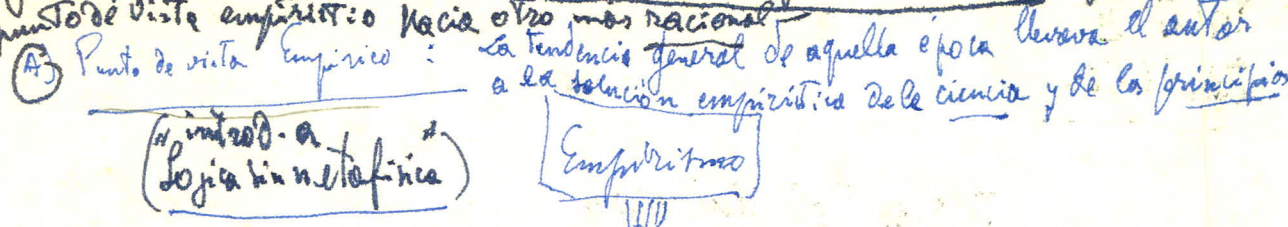 punto de vista empiristio hacia otro mas racional
A) Punto de vista Empirico : La tendencia general de aquella época llevava el autor
a la solución empiristica de la ciencia y de los principios
("introd. a
Logica sin metafisica")
Empiritmo